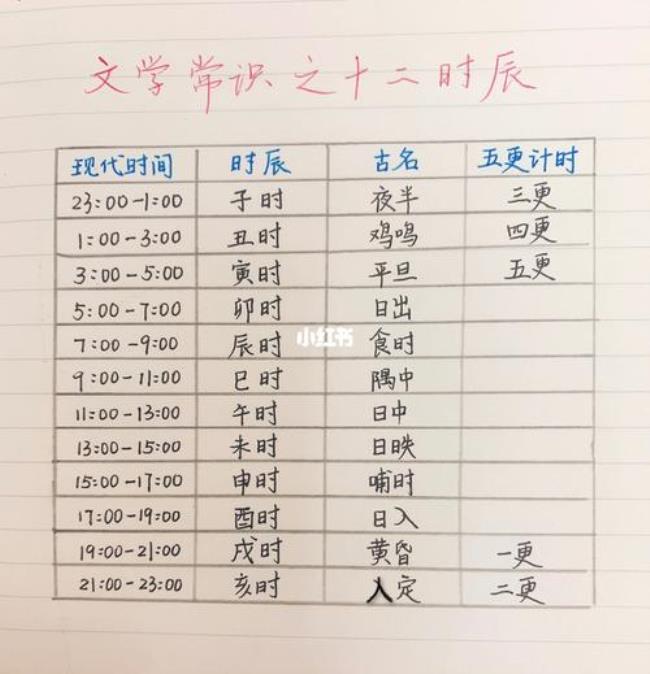 文学常识之十二时辰
现代时间 时辰 古名 五更计时
23:00-1:00 子时 夜半 三更
1:00-3:00 丑时 鸡鸣 四更
3:00-5:00 寅时 平旦 五更
5:00-7:00 卯时 日出
7:00-9:00 辰时 食时
小红书
9:00-11:00 巳时 隅中
11:00-13:00 午时 日中
13:00-15:00 未时 日昳
15:00-17:00 申时 哺时
17:00-19:00 酉时 日入
19:00-21:00 戌时 黄昏 一更
21:00-23:00 亥时 人定 二更